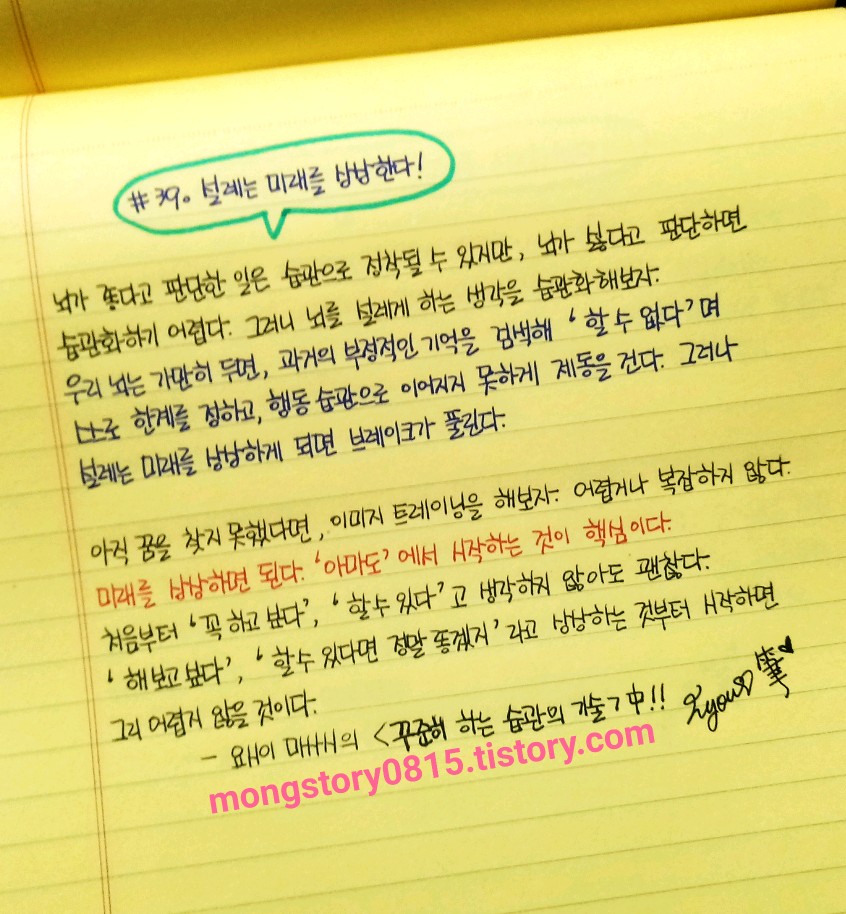 #39. 설레는 미래를 상상한다!
뇌가 좋다고 판단한 일은 습관으로 정착될 수 있지만, 뇌가 싫다고 판단하면
습관화하기 어렵다. 그러니 뇌를 설레게 하는 생각을 습관화해보자.
우리 뇌는 가만히 두면, 과거의 부정적인 기억을 검색해 '할 수 없다'며
스스로 한계를 정하고, 행동 습관으로 이어지지 못하게 제동을 건다. 그러나
설레는 미래를 상상하게 되면 브레이크가 풀린다.
아직 꿈을 찾지 못했다면, 이미지 트레이닝을 해보자. 어렵거나 복잡하지 않다.
미래를 상상하면 된다. '아마도'에서 시작하는 것이 핵심이다.
처음부터 '꼭 하고 싶다', '할 수 있다'고 생각하지 않아도 괜찮다.
'해보고 싶다', '할 수 있다면 정말 좋겠지'라고 상상하는 것부터 시작하면
그리 어렵지 않을 것이다.
- 오히라 의 <꾸준히 하는 습관의 기술> 中!!
mongstory0815.tistory.com